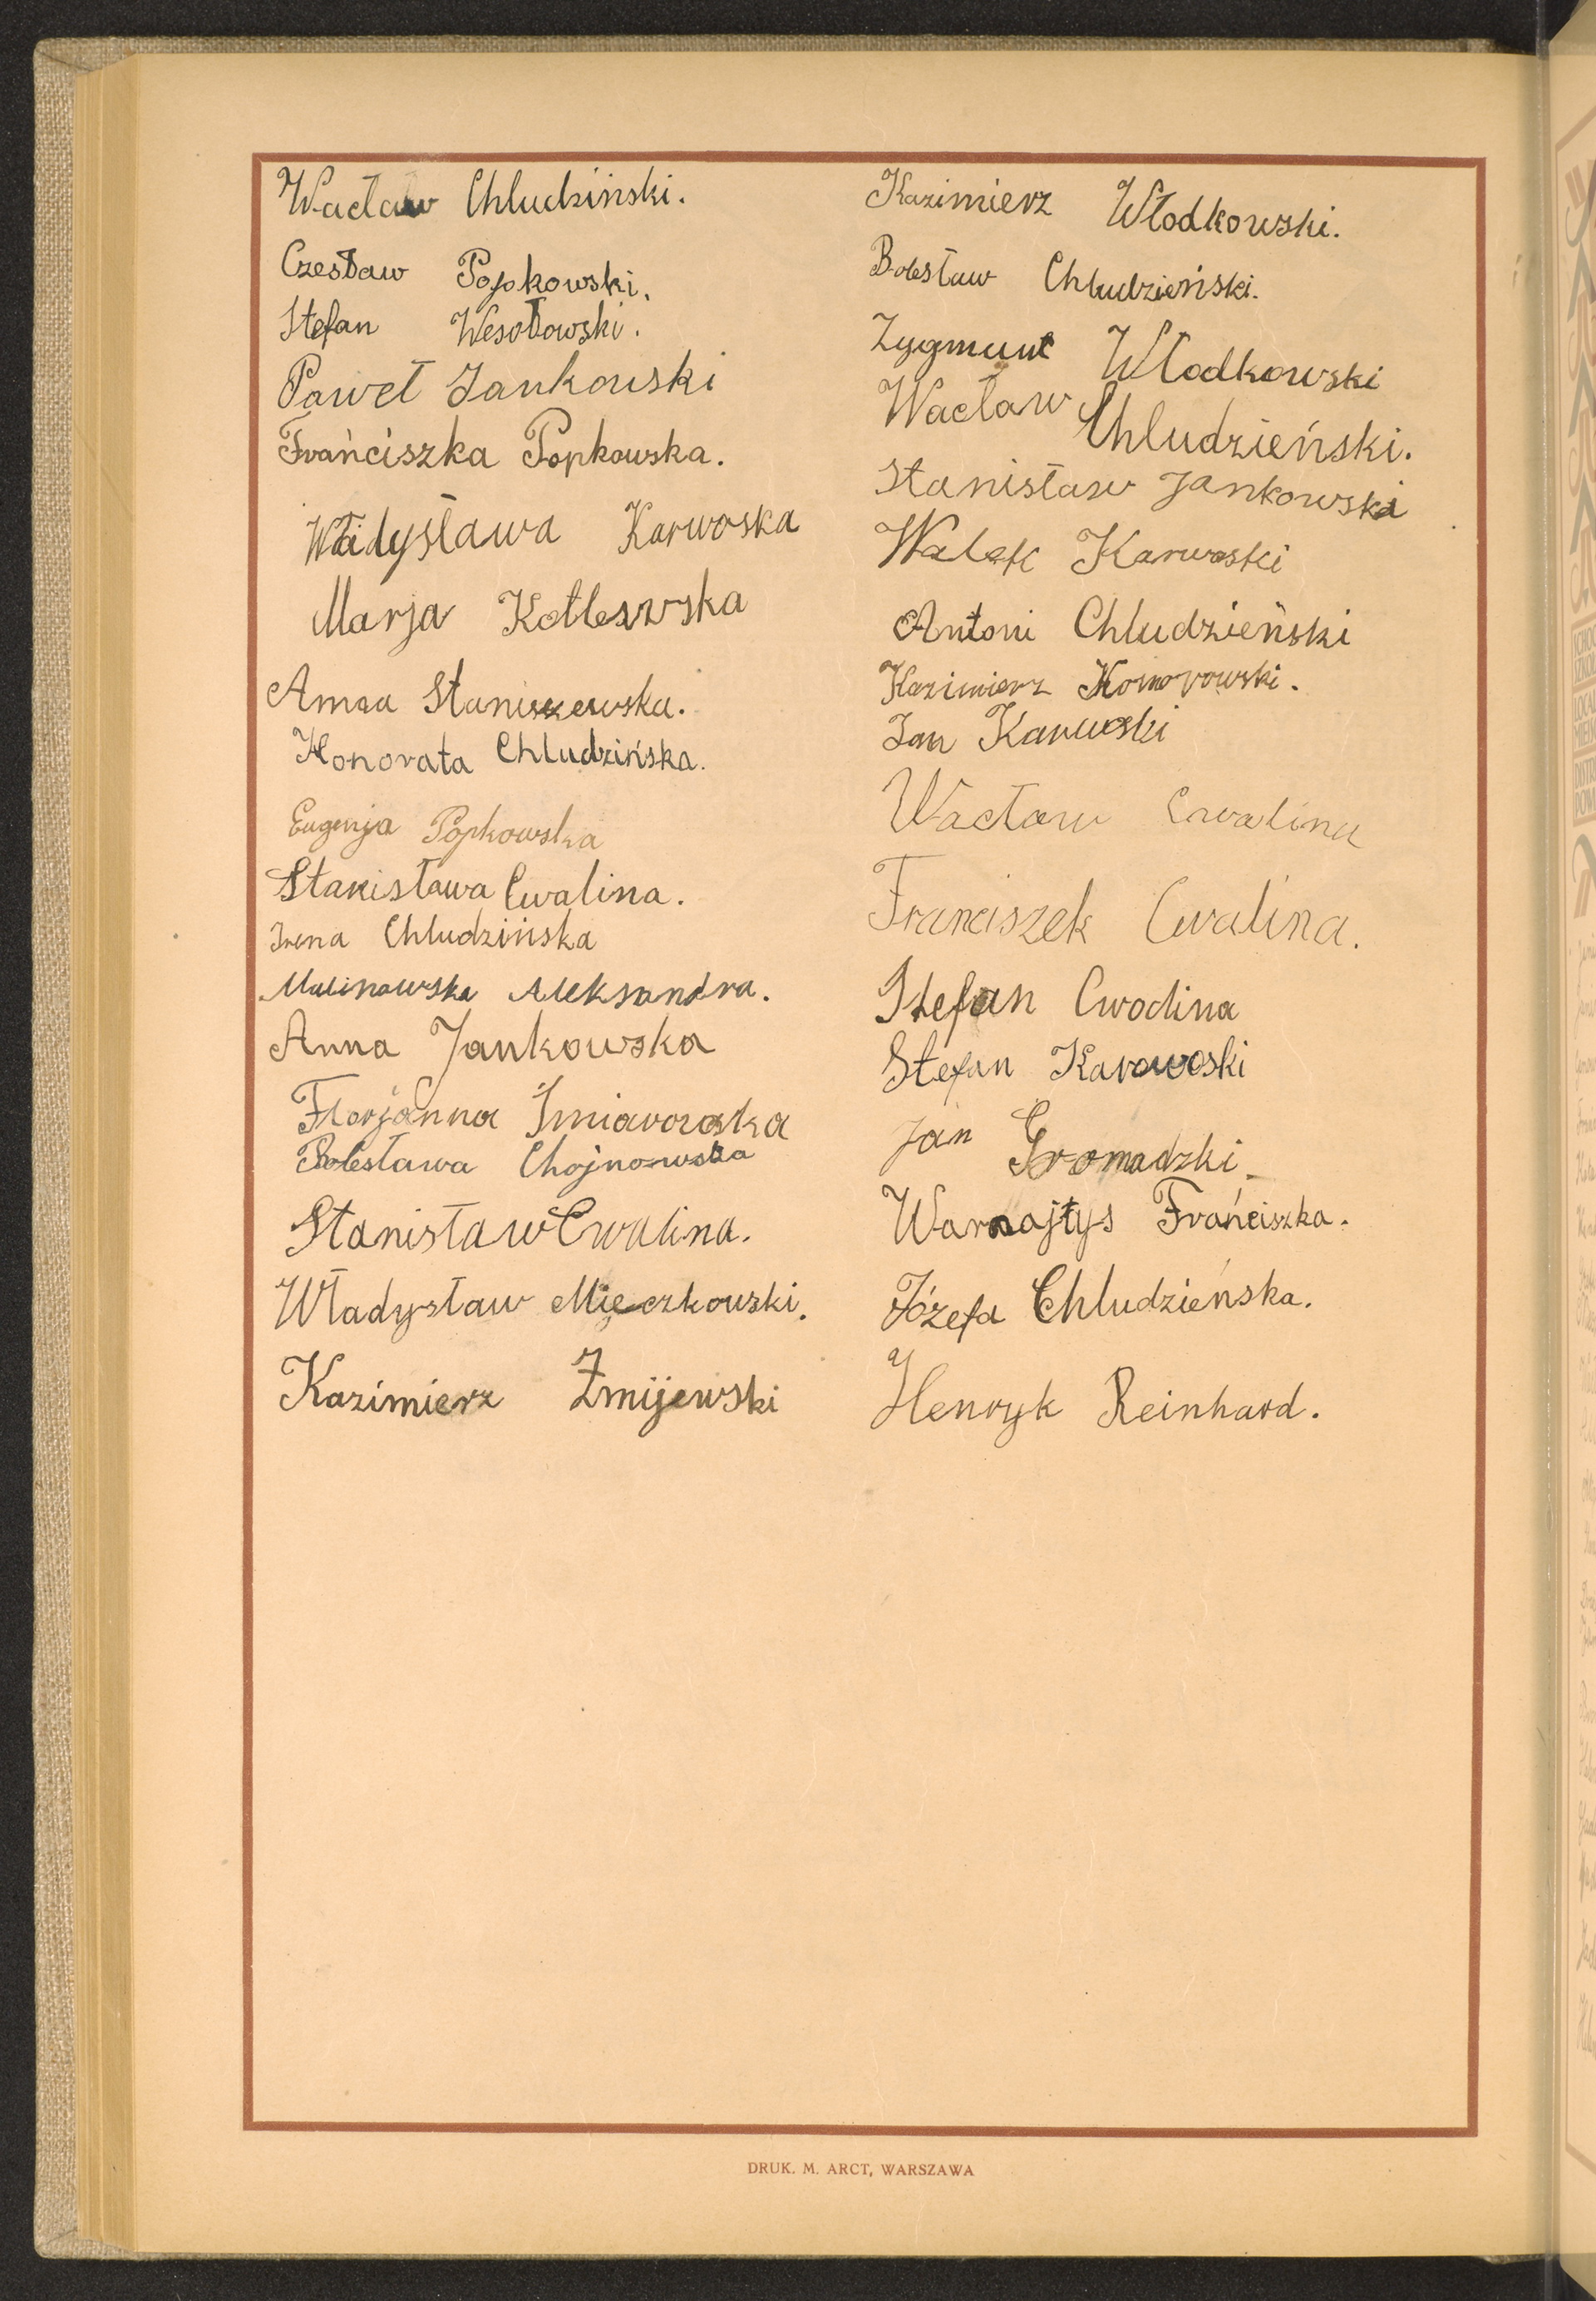 Wacław Chludziński.
Czesław Popkowski.
Stefan Wesołowski.
Paweł Jankowski
Frańciszka Popkowska.
Władysława Karwoska
Marja Kotleszska
Anna Staniszewska.
Honorata Chludzińska.
Eugenja Popkowska
Stanisława Cwalina.
Irena Chludzińska
Malinowska Aleksandra.
Anna Jankowska
Florjanna Śmiarowska
Bolesława Chojnowska
Stanisław Cwalina.
Władysław Mieczkowski.
Kazimierz Żmijewski
Kazimierz Włodkowski.
Bolesław Chludzieński.
Zygmunt Włodkowski
Wacław Chludzieński.
Stanisław Jankowski
Walek Karwoski
Antoni Chludzieński
Kazimierz Komorowski.
Jan Karwoski
Wacław Cwalina
Franciszek Cwalina.
Stefan Cwodina
Stefan Karowoski
Jan Gromadzki
Warnajtys Frańciszka.
Józefa Chludzieńska.
Henryk Reinhard.
DRUK. M. ARCT, WARSZAWA